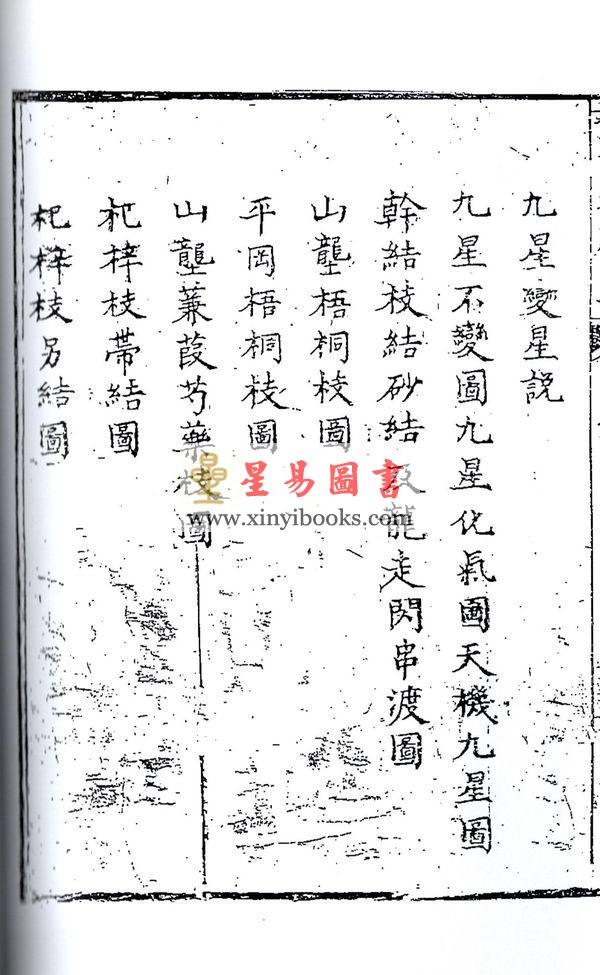 九星變星說
九星不變圖九星化氣圖天機九星圖
幹結枝結砂結及龍走閃串渡圖
山壟梧桐枝圖
平岡梧桐枝圖
山壟蒹葭芍藥枝圖
杞梓枝帶結圖
杞梓枝另結圖
星易圖書
www.xinyibooks.com